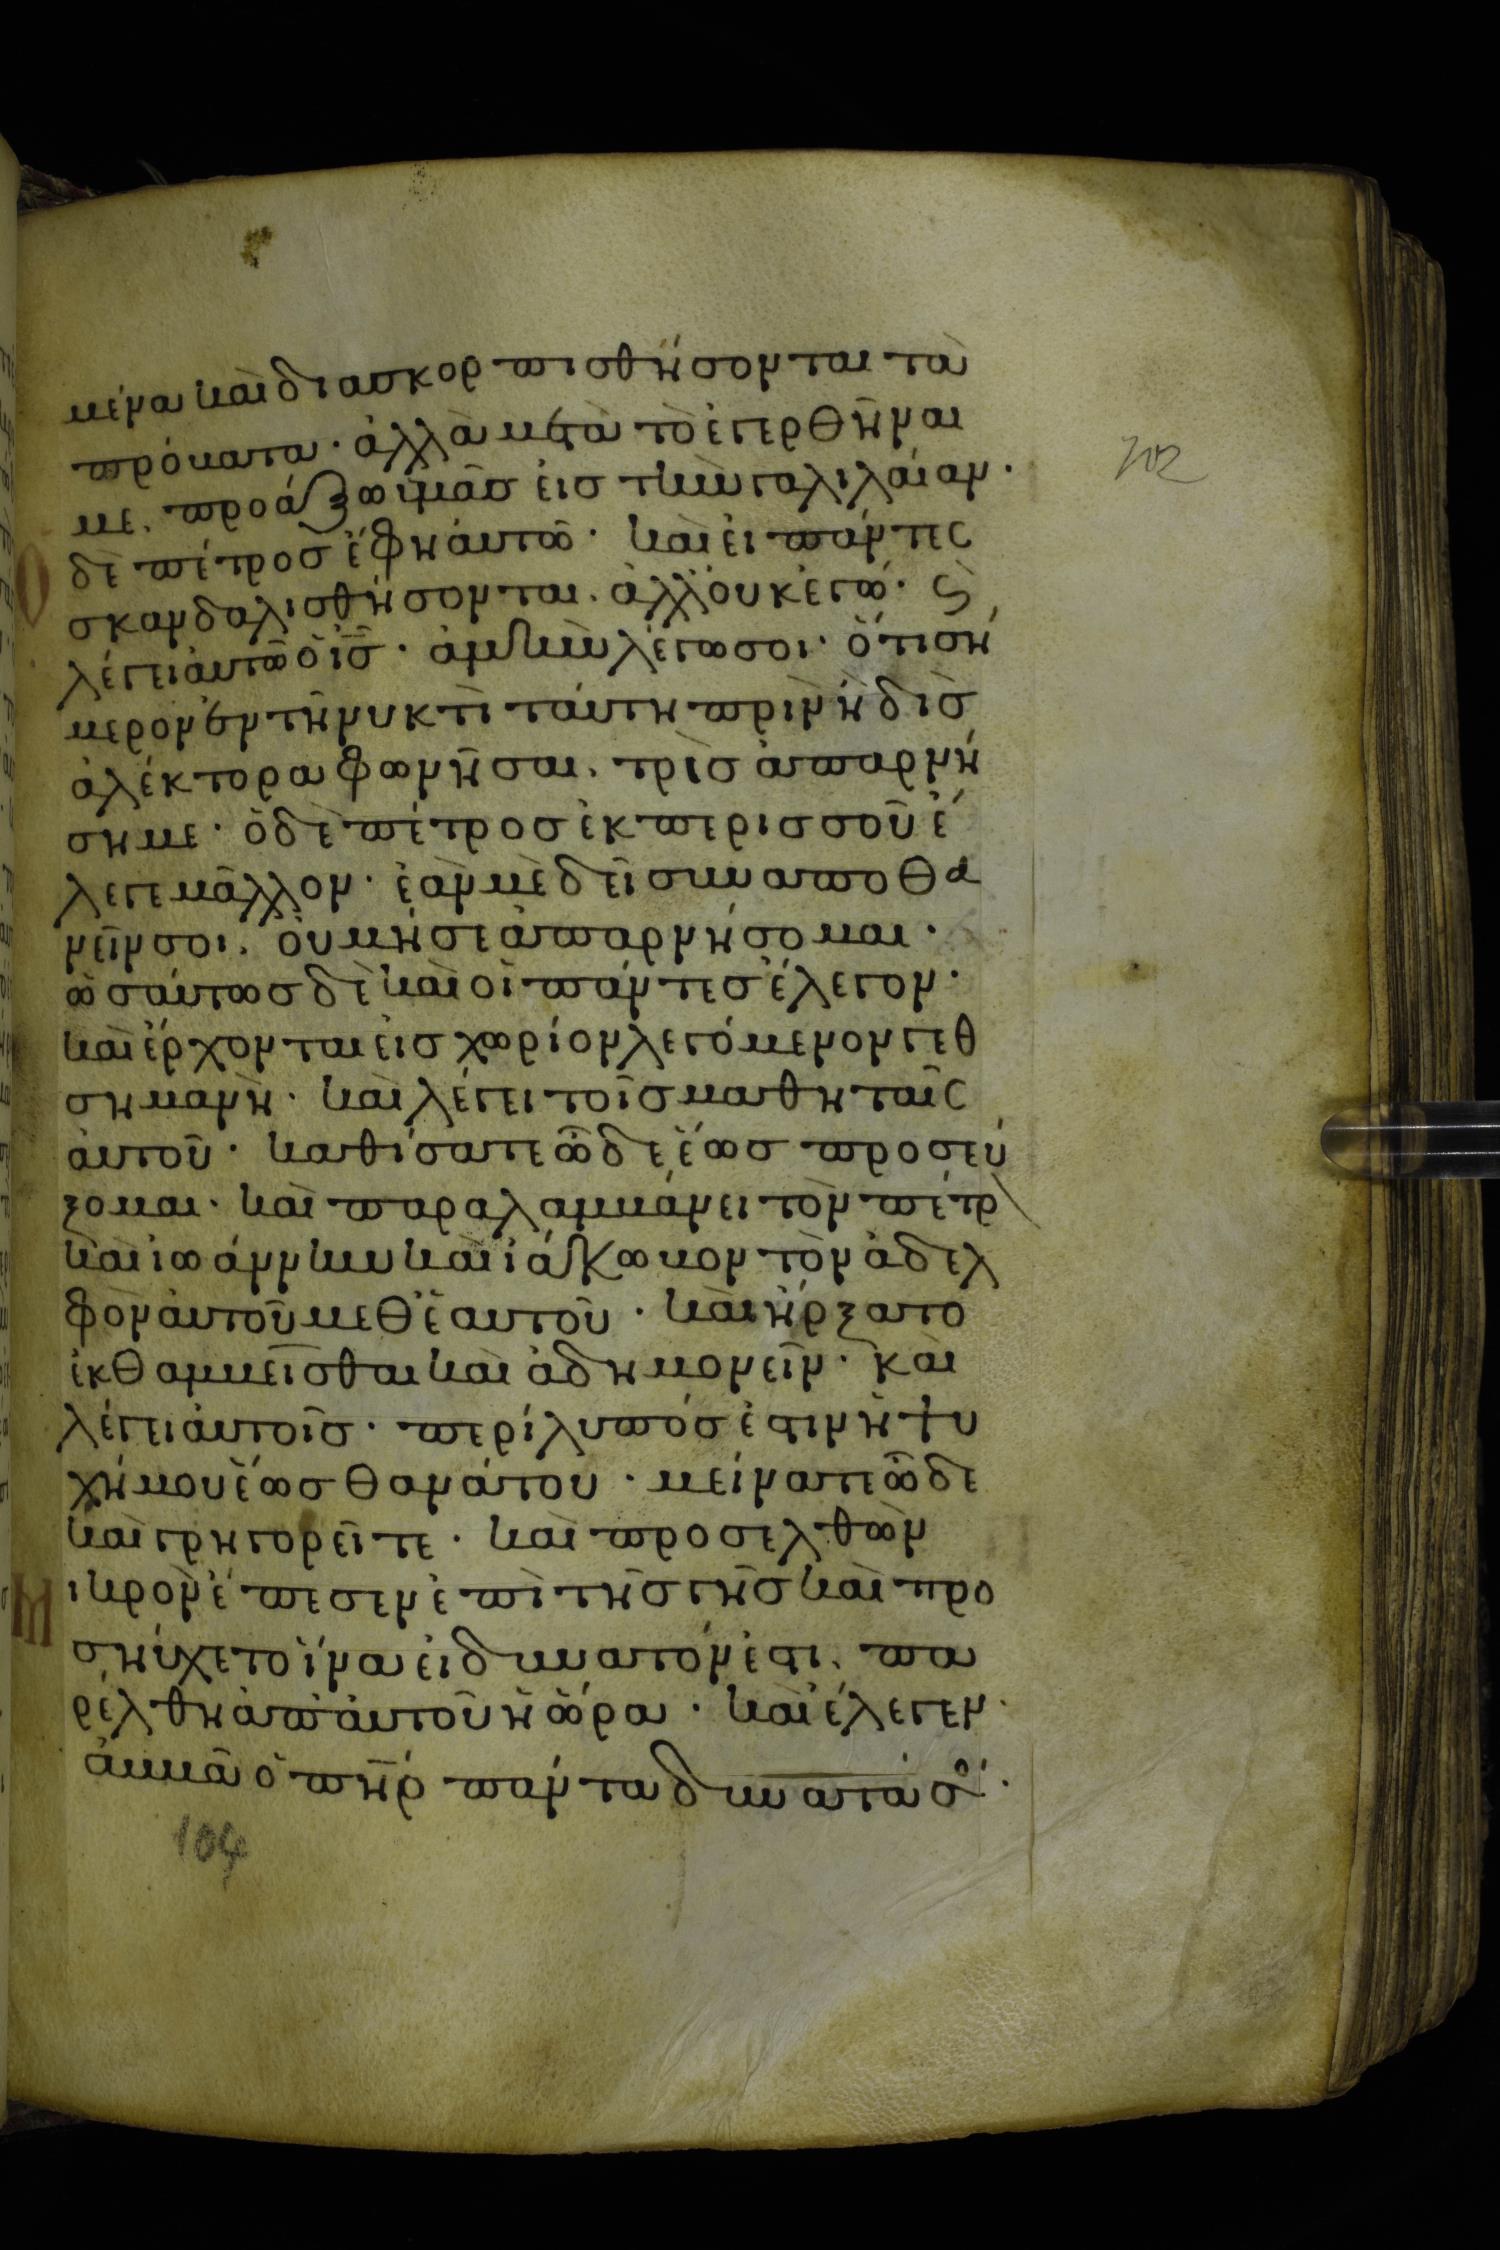 μένα καὶ διασκορπισθήσονται τὰ
πρόβατα· ἀλλὰ μετὰ τὸ ἐγερθῆναι
με, προάξω ὑμᾶς εἰς τὴν γαλιλαίαν·
Ὁ δὲ πέτρος ἔφη αὐτῶ· καὶ εἰ πάντες
σκανδαλισθήσονται, ἀλλ' οὐκ ἐγώ· ϛ
λέγει αὐτῶ ὁ ισ̅· ἀμὴν λέγω σοι· ὅτι σή
μερον ἐν τῆ νυκτὶ ταύτη πρὶν ἢ δὶς
ἀλέκτορα φωνῆσαι, τρὶς ἀπαρνή
ση με· ὁ δὲ πέτρος ἐκ περισσοῦ ἔ
λεγε μᾶλλον· ἐάν με δεῖ συναποθα
νεῖν σοι, οὐ μή σε ἀπαρνήσομαι·
ὡσαύτως δὲ καὶ οἱ πάντες ἔλεγον·
καὶ ἔρχονται εἰς χωρίον λεγόμενον γεθ
σημανῆ· καὶ λέγει τοῖς μαθηταῖς
αὐτοῦ· καθίσατε ὧδε ἕως προσεύ
ξομαι· καὶ παραλαμβάνει τὸν πέτρ\
καὶ ἰωάννην καὶ ἰάκωβον τὸν ἀδελ
φὸν αὐτοῦ μεθ' ἑαυτοῦ· καὶ ἤρξατο
ἐκθαμβεῖσθαι καὶ ἀδημονεῖν· καὶ
λέγει αὐτοῖς· περίλυπός ἐστιν ἡ ψυ
χή μου ἕως θανάτου· μείνατε ὧδε
καὶ γρηγορεῖτε· καὶ προσελθὼν
Μικρὸν ἔπεσεν ἐπὶ τῆς γῆς καὶ προ
σηύχετο ἵνα εἰ δυνατόν ἐστι, πα
ρέλθη ἀπ' αὐτοῦ ἡ ὥρα· καὶ ἔλεγεν·
ἀββᾶ ὁ πη̅ρ πάντα δυνατά σοι·
102
104